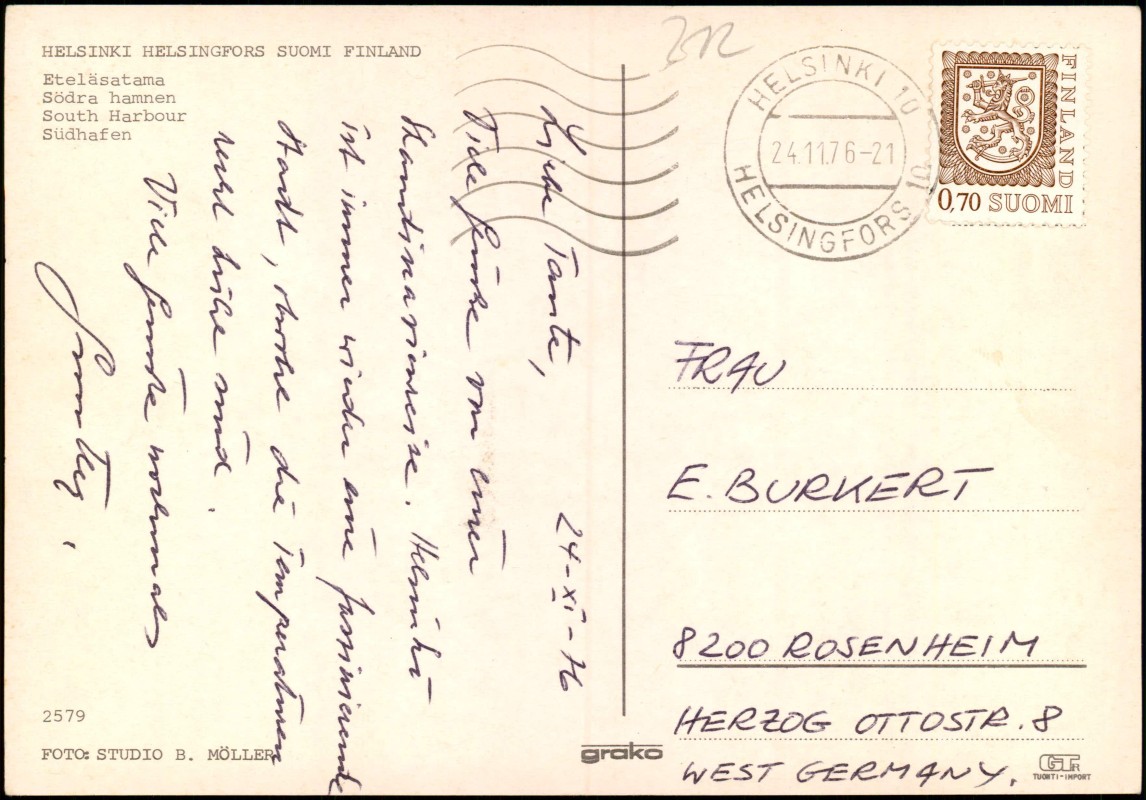 HELSINKI HELSINGFORS SUOMI FINLAND
Eteläsatama
Södra hamnen
South Harbour
Südhafen
Liebe Tante, 24-XI-76
Viele Grüße von einer
Skandinavienreise. Helsinki
ist immer wieder eine faszinierende
Stadt, die Temperaturen
recht kühl sind.
Viele Grüße nochmals
2579
FOTO: STUDIO B. MÖLLER
grako
HELSINKI 10
24.11.76-21
HELSINGFORS 10
FINLAND
0,70 SUOMI
FRAU
E. BURKERT
8200 ROSENHEIM
HERZOG OTTOSTR. 8
WEST GERMANY.
TUONTI-IMPORT